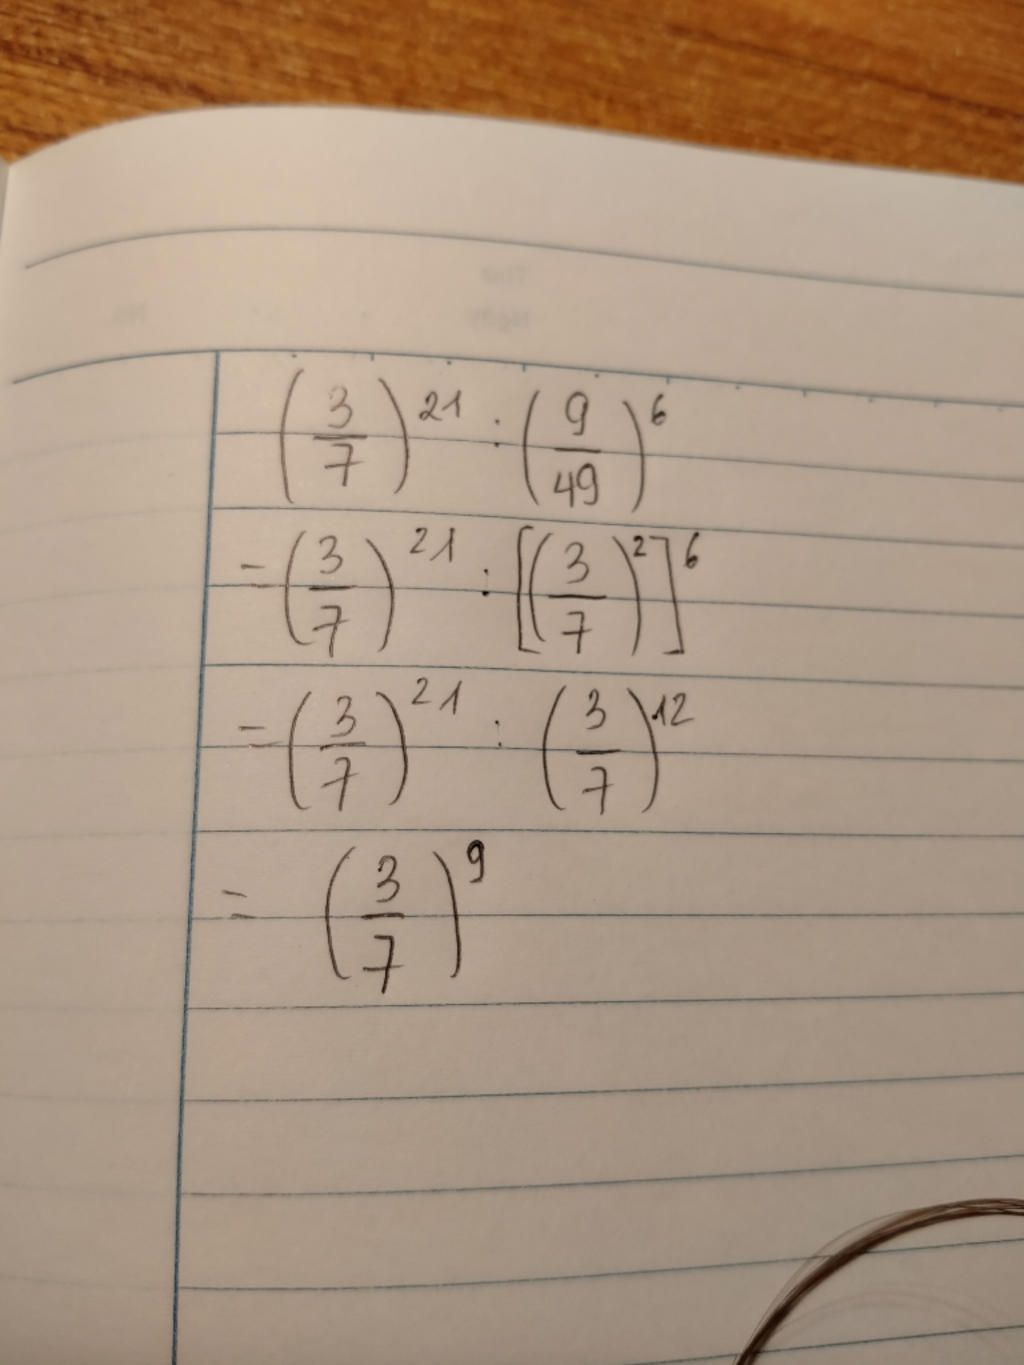 (3/7)^21 : (9/49)^6
= (3/7)^21 : [(3/7)^2]^6
= (3/7)^21 : (3/7)^12
= (3/7)^9